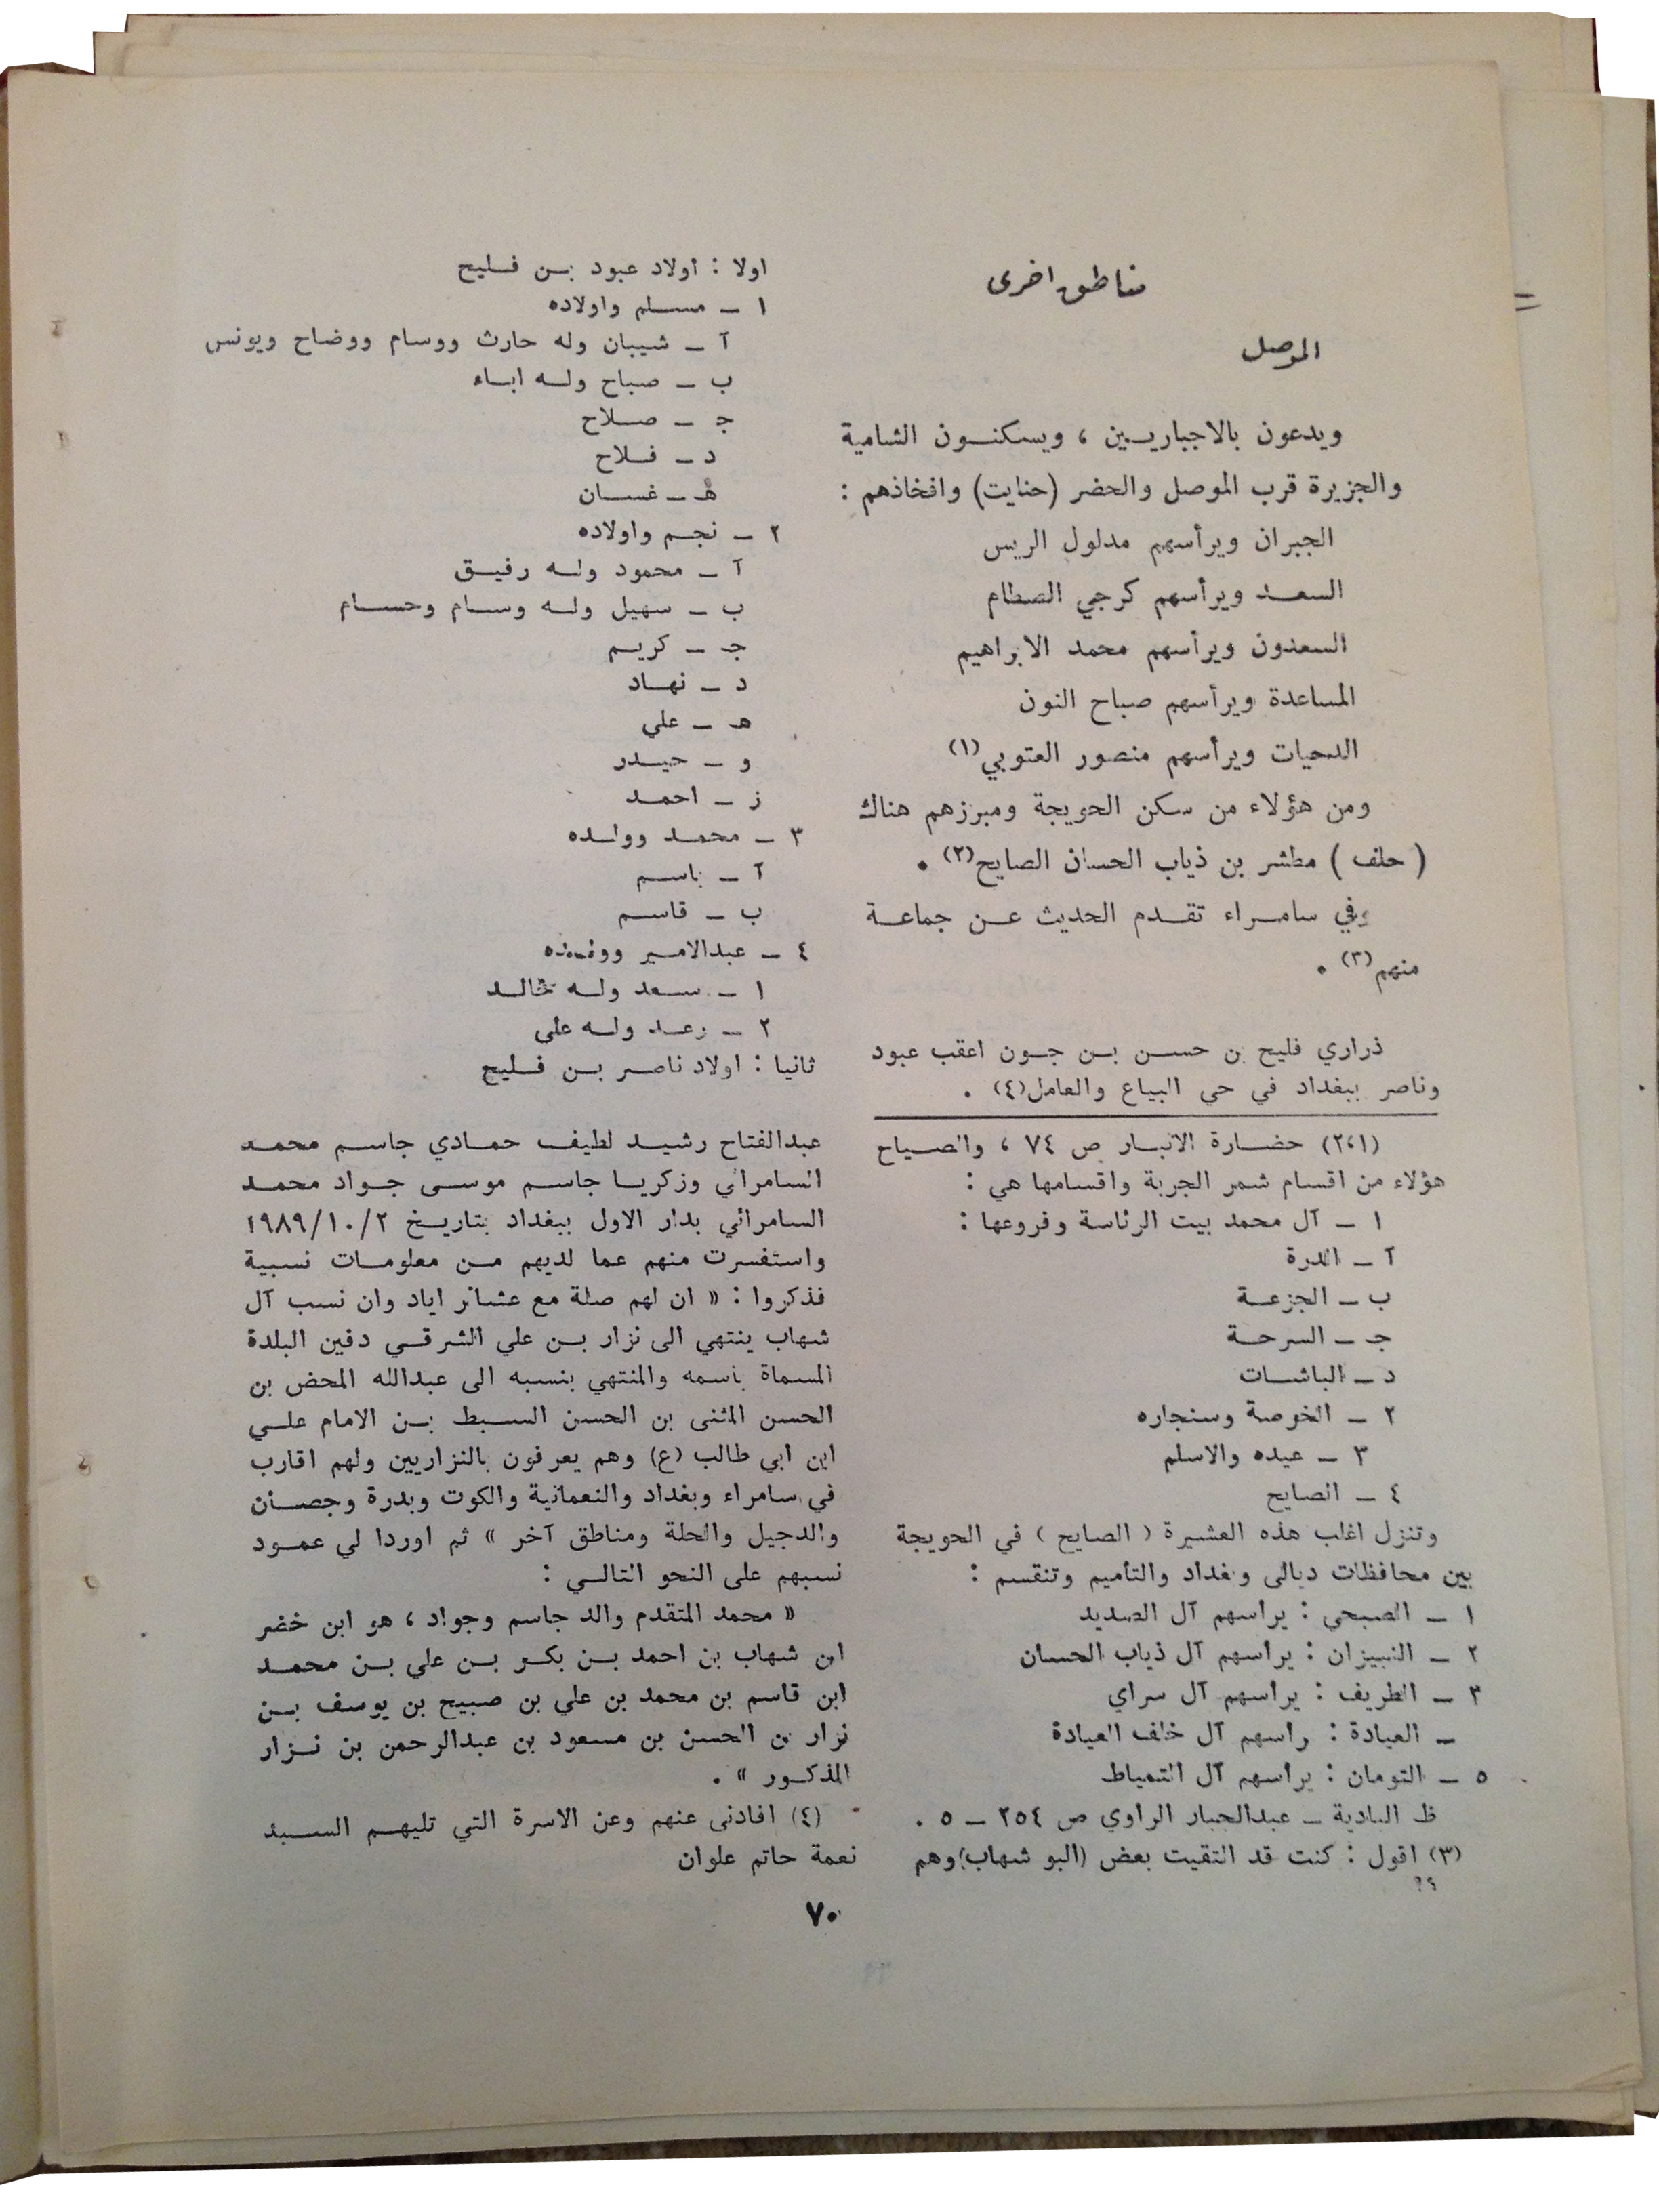 مناطق اخرى
الموصل
ويدعون بالاجباريـين ، ويسكنـون الشامية
والجزيرة قرب الموصل والحضر (حنايت) وافخاذهم :
الجبران ويرأسهم مدلول الريس
السعـد ويرأسهم كرجي الصطام
السعدون ويرأسهم محمد الابراهيم
المساعدة ويرأسهم صباح النون
اللحيات ويرأسهم منصور العتوبي(١)
ومن هؤلاء من سكن الحويجة ومبرزهم هناك
( حلف ) مطشر بن ذياب الحسان الصايح(٢) .
وفي سامـراء تقـدم الحديث عـن جماعـة
منهم(٣) .
ذراري فليح بن حسـن بـن جـون اعقب عبود
وناصر ببغداد في حي البياع والعامل(٤) .
(٢،١) حضـارة الانبـار ص ٧٤ ، والصـياح
هؤلاء من اقسام شمر الجربة واقسامها هي :
١ ـ آل محمد بيت الرئاسة وفروعها :
آ ـ الدرة
ب ـ الجزعـة
جـ ـ السرحـة
د ـ الباشـات
٢ ـ الخرصة وسنجاره
٣ ـ عبده والاسلم
٤ ـ الصايح
وتنزل اغلب هذه العشيرة ( الصايح ) في الحويجة
بين محافظات ديالى وبغداد والتأميم وتنقسم :
١ ـ الصبحي : يرأسهم آل الصديد
٢ ـ النبيزان : يرأسهم آل ذياب الحسان
٣ ـ الطريف : يرأسهم آل سراي
ـ العيادة : رأسهم آل خلف العيادة
٥ ـ التومان : يرأسهم آل التمياط
ظ البادية ـ عبدالجبار الراوي ص ٢٥٤ ـ ٥ .
(٣) اقول : كنت قد التقيت بعض (البو شهاب) وهم
اولا : اولاد عبود بـن فـليح
١ ـ مسـلم واولاده
آ ـ شيبان وله حارث ووسام ووضاح ويونس
ب ـ صباح ولـه ابـاء
جـ ـ صـلاح
د ـ فـلاح
هـ ـ غسـان
٢ ـ نجـم واولاده
آ ـ محمود ولـه رفيـق
ب ـ سهيل ولـه وسـام وحسـام
جـ ـ كريـم
د ـ نهـاد
هـ ـ علي
و ـ حيـدر
ز ـ احمـد
٣ ـ محمـد وولـده
آ ـ باسـم
ب ـ قاسـم
٤ ـ عبدالاميـر وولـده
١ ـ سـعد ولـه خالـد
٢ ـ رعـد ولـه علي
ثانيا : اولاد ناصـر بـن فـليح
عبدالفتاح رشيـد لطيف حمـادي جاسـم محمـد
السامرائي وزكريـا جاسـم موسـى جـواد محمـد
السامرائي بدار الاول ببغداد بتاريـخ ١٩٨٩/١٠/٢
واستفسرت منهم عما لديهم مـن معلومـات نسبية
فذكروا : « ان لهم صلة مع عشائر اياد وان نسب آل
شهاب ينتهي الى نزار بـن علي الشرقـي دفين البلدة
المسماة باسمه والمنتهي بنسبه الى عبدالله المحض بن
الحسن المثنى بن الحسن السـبط بـن الامام علـي
ابن ابي طالب (ع) وهم يعرفون بالنزاريين ولهم اقارب
في سامراء وبغداد والنعمانية والكوت وبدرة وجصـان
والدجيل والحلة ومناطق آخر » ثم اوردا لي عمـود
نسبهم على النحو التالـي :
« محمد المتقدم والد جاسم وجواد ، هو ابن خضر
ابن شهاب بن احمد بـن بكـر بـن علي بـن محمـد
ابن قاسم بن محمد بن علي بن صبيح بن يوسف بـن
نزار بن الحسن بن مسعود بن عبدالرحمن بن نـزار
المذكـور » .
(٤) افادنى عنهم وعن الاسرة التي تليهـم السـيد
نعمة حاتم علوان
٧٠